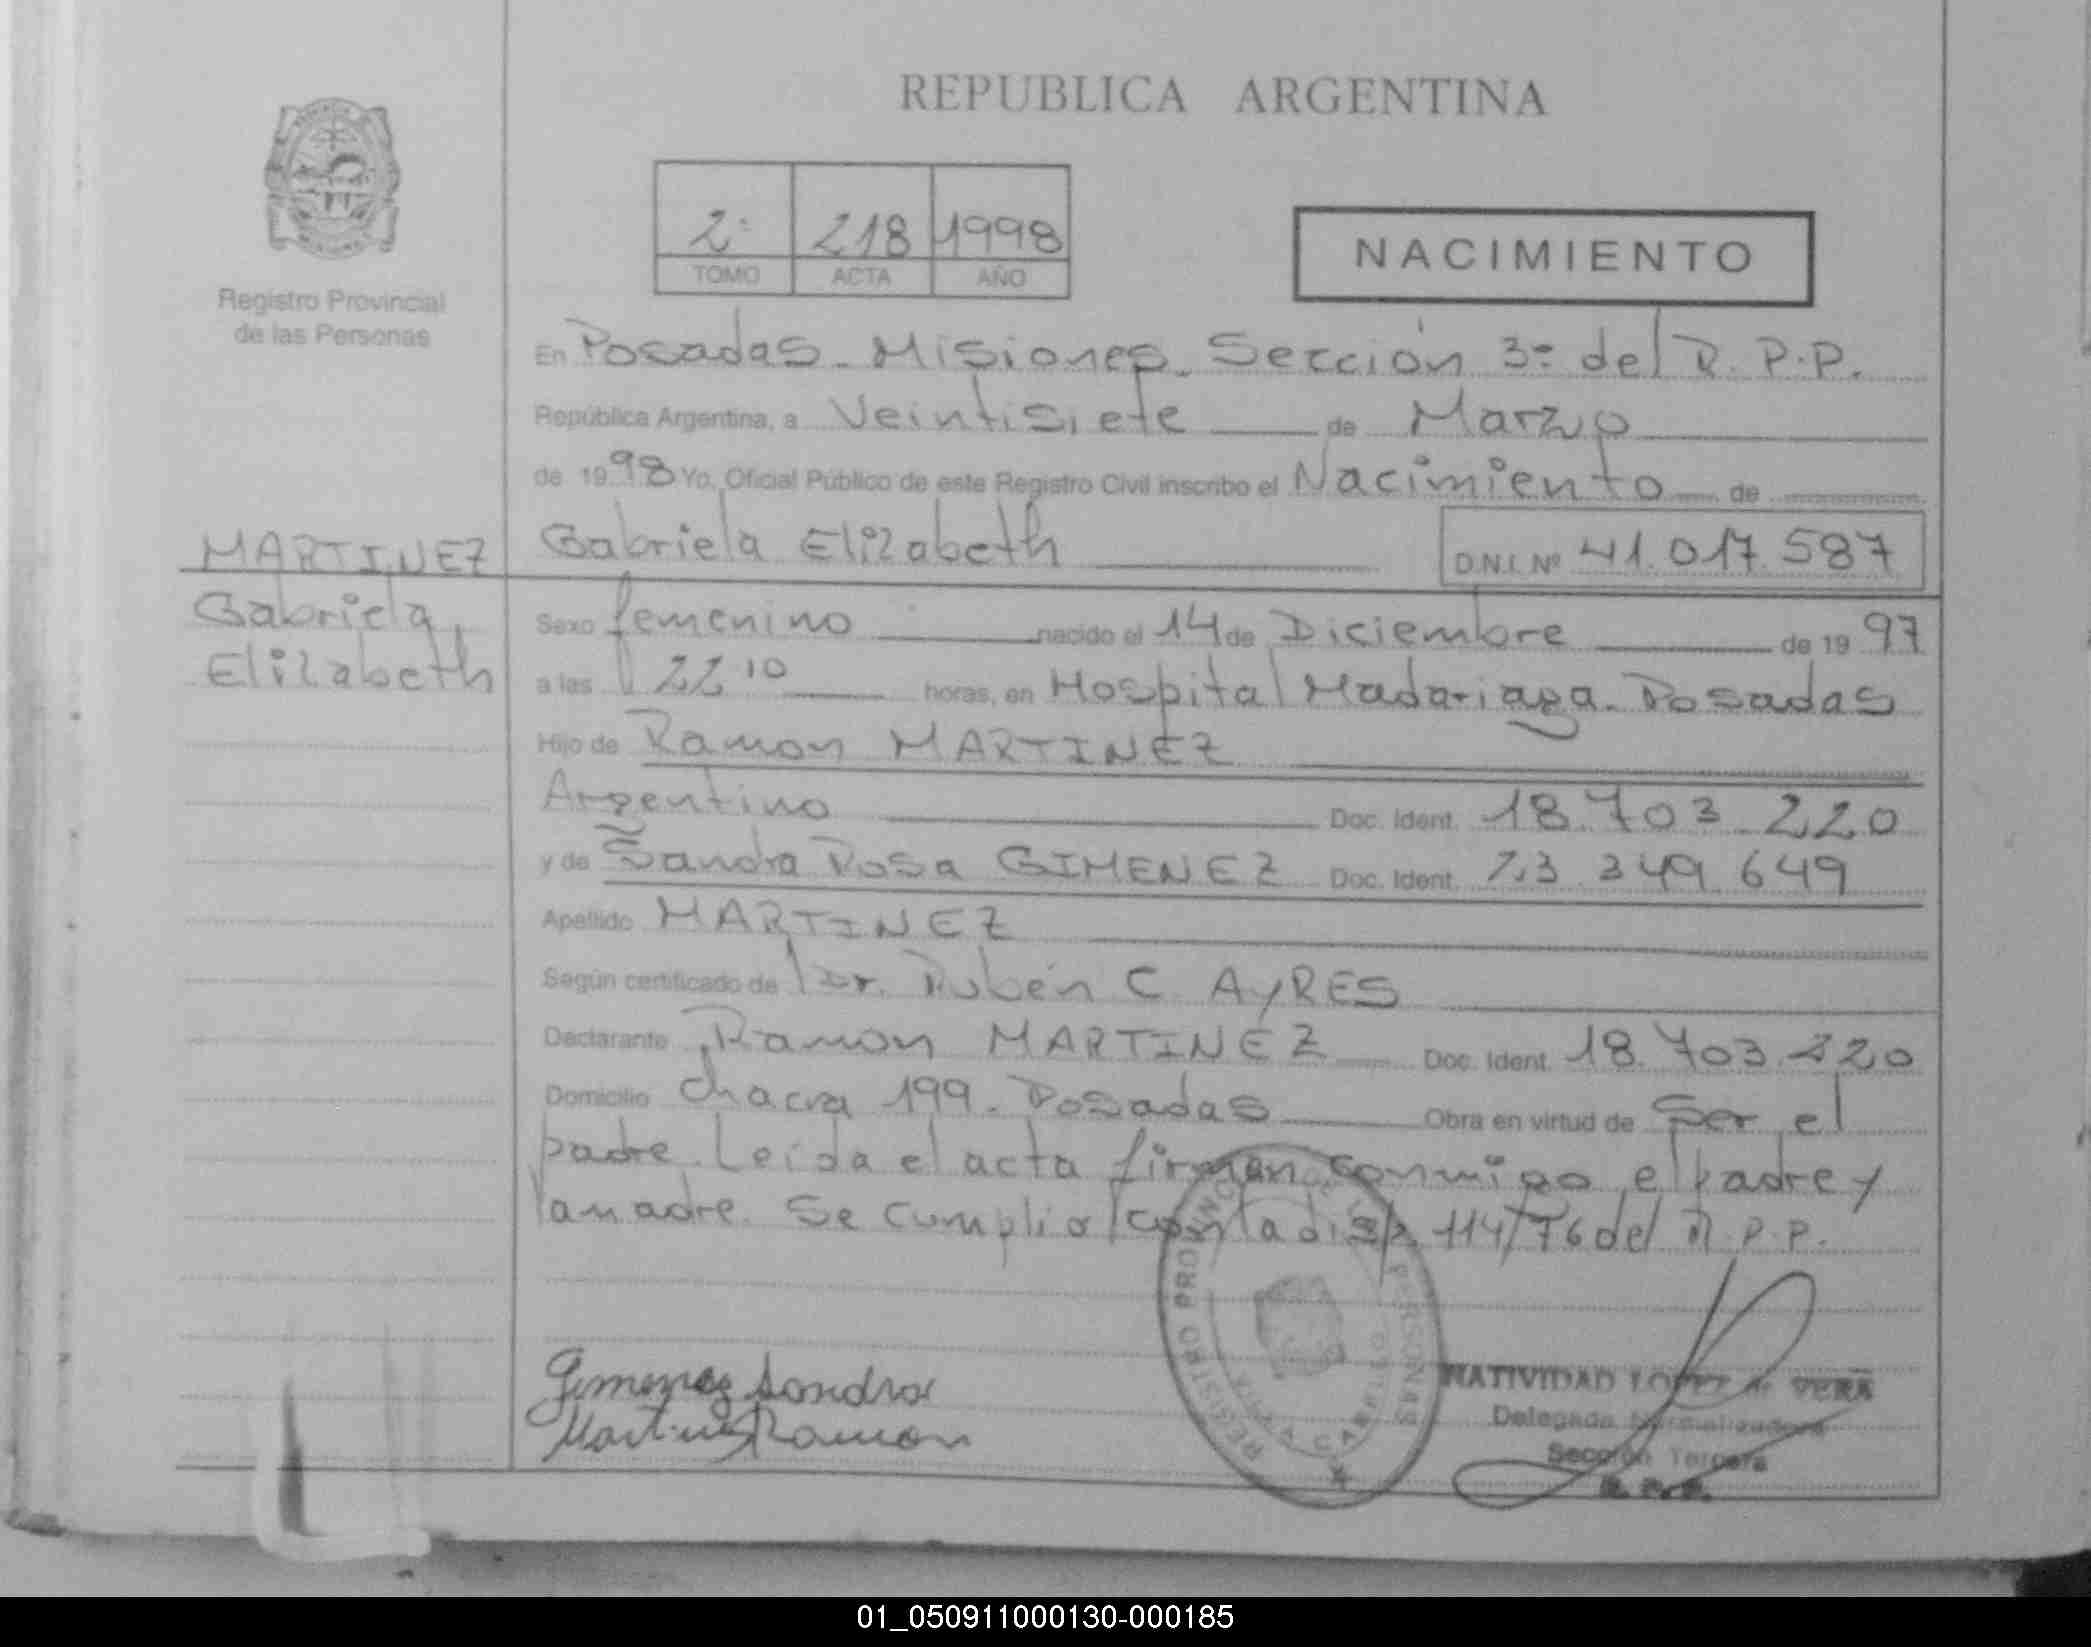 REPUBLICA ARGENTINA
Registro Provincial
de las Personas
2º 218 1998
TOMO ACTA AÑO
NACIMIENTO
En Posadas - Misiones - Sección 3º del R. P. P.
República Argentina, a Veintisiete de Marzo
de 1998 Yo, Oficial Público de este Registro Civil inscribo el Nacimiento de
MARTINEZ
Gabriela
Elizabeth
Gabriela Elizabeth D.N.I. Nº 41.017.587
Sexo femenino nacido el 14 de Diciembre de 1997
a las 22 10 horas, en Hospital Madariaga - Posadas
Hijo de Ramon MARTINEZ
Argentino Doc. Ident. 18.703.220
y de Sandra Rosa GIMENEZ Doc. Ident. 23.349.649
Apellido MARTINEZ
Según certificado de Dr. Rubén C. AYRES
Declarante Ramon MARTINEZ Doc. Ident. 18.703.220
Domicilio Chacra 199 - Posadas Obra en virtud de Ser el
padre. Leída el acta firman conmigo el padre y
la madre. Se cumplio con la disp. 114/76 del R. P. P.
Gimenez Sandra
Martinez Ramon
REGISTRO PROVINCIAL PERSONAS
NATIVIDAD LOPEZ de VERA
Delegada Normalizadora
Sección Tercera
R. P. P.
01_050911000130-000185